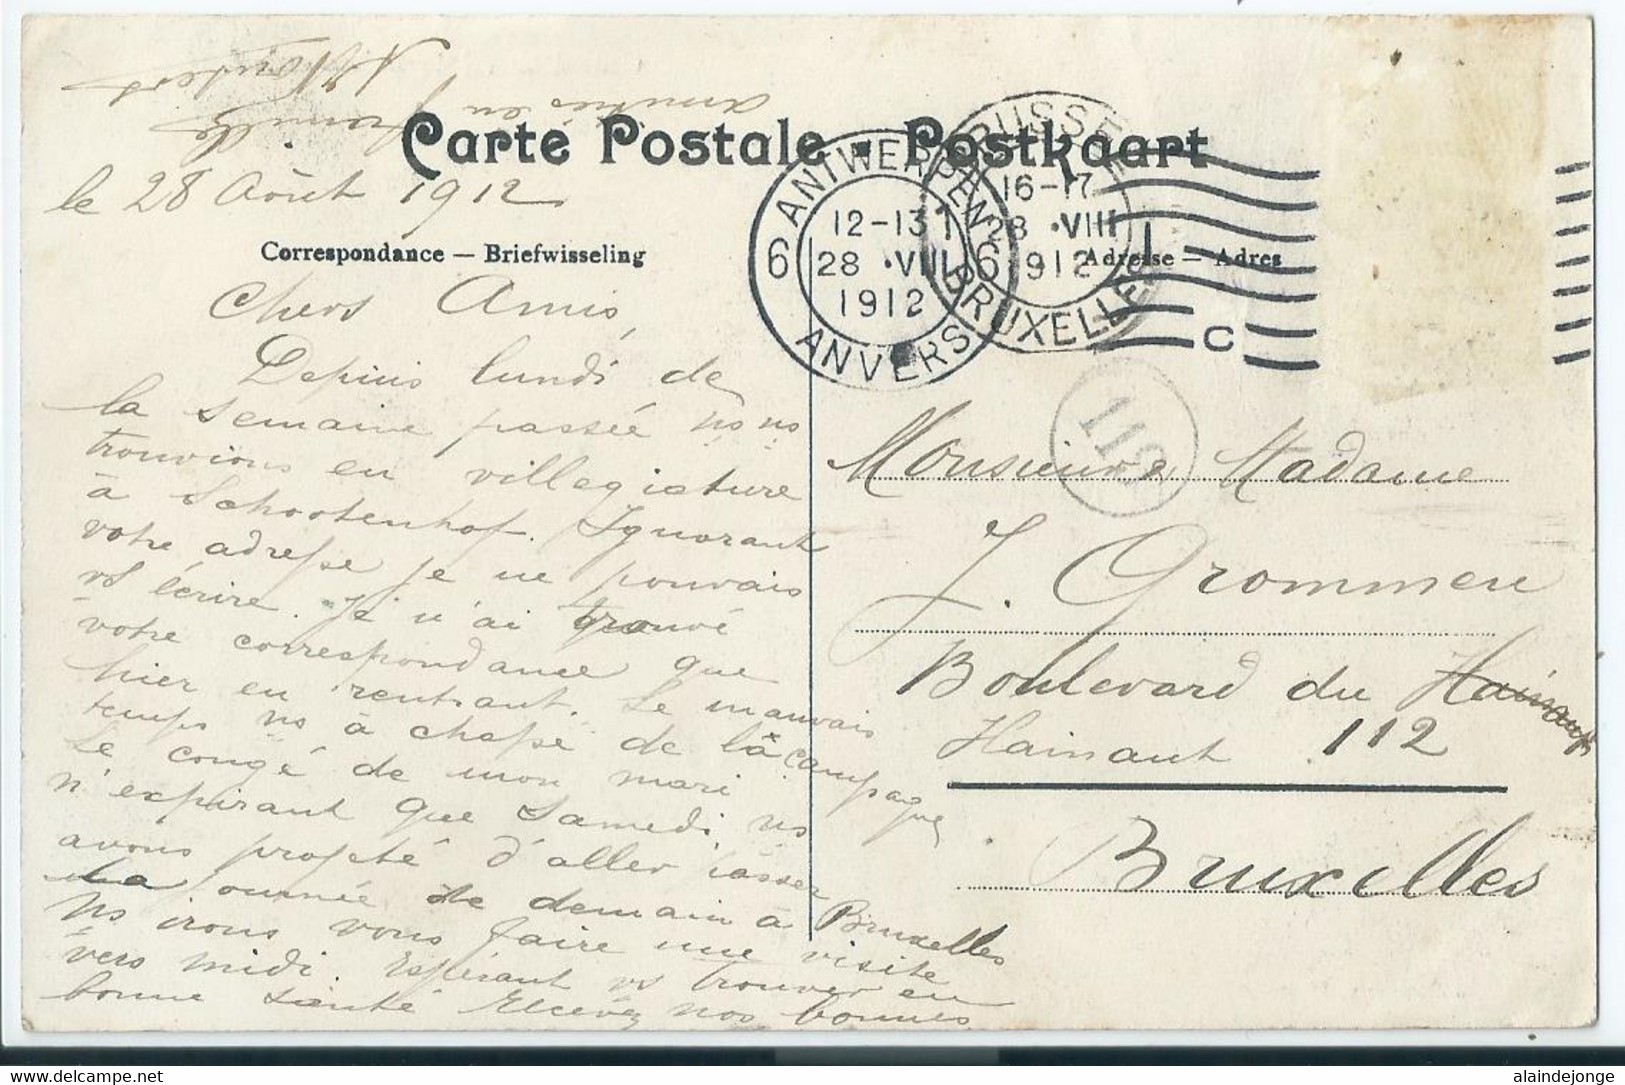 Carte Postale - Postkaart
le 28 Août 1912
Correspondance — Briefwisseling
Adresse — Adres
ANTWERPEN 6
12-13
28 · VIII
1912
6 ANVERS
BRUSSEL
16-17
28 · VIII
1912
BRUXELLES
1
C
119
Chers Amis,
Depuis lundi de
la semaine passée ns ns
trouvions en villegiature
à Schootenhof. Ignorant
votre adresse je ne pouvais
vs écrire. Je n'ai trouvé
votre correspondance que
hier en rentrant. Le mauvais
temps ns à chassé de la campagne
Le congé de mon mari
n'expirant que Samedi ns
avons projeté d'aller passer
la journée de demain à Bruxelles
Ns irons vous faire une visite
vers midi. Espérant vs trouver en
bonne santé Recevez nos bonnes
amitiés en
famille
Monsieur & Madame
J. Grommen
Boulevard du
Hainaut 112
Bruxelles
delcampe.net
alaindejonge